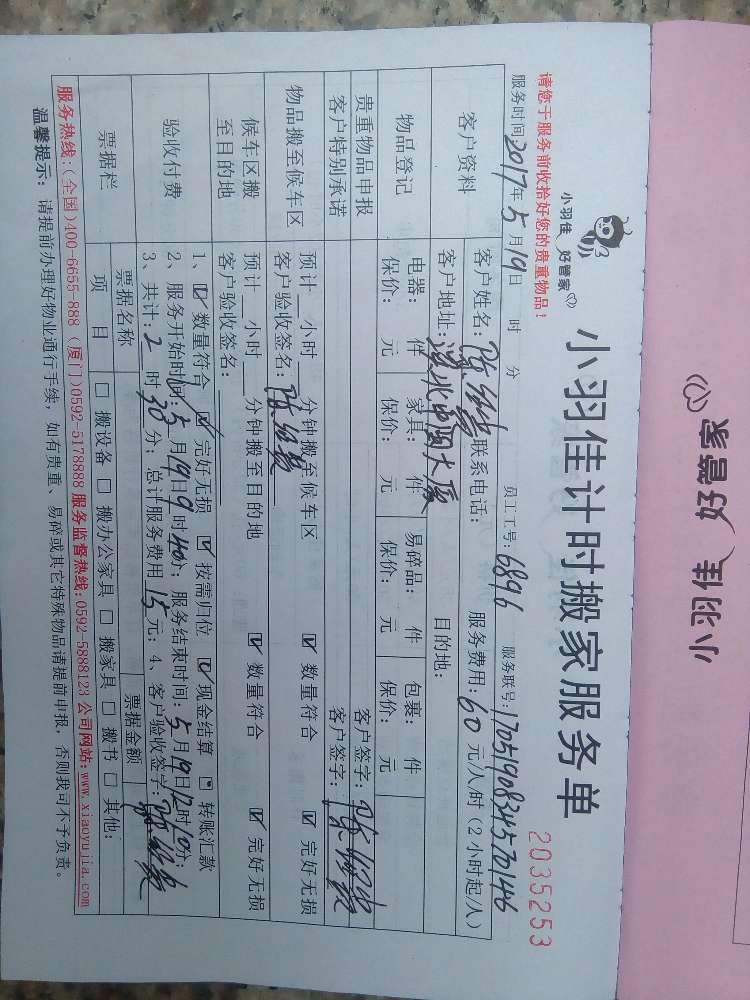 小羽佳 好管家
小羽佳 好管家
小羽佳计时搬家服务单
2035253
请您于服务前收拾好您的贵重物品！
服务时间2017年5月19日 时 分 员工工号：6896 服务联号：17051908345701446
客户资料 客户姓名： 联系电话： 服务费用：60元/人/时（2小时起/人）
客户地址：湖北 大厦 目的地：
物品登记 电器： 件 家具： 件 易碎品： 件 包裹： 件
保价： 元 保价： 元 保价： 元 保价： 元
贵重物品申报 客户签字：
客户特别承诺 客户签字：
物品搬至候车区 预计 小时 分钟搬至候车区 ☑ 数量符合 ☑ 完好无损
客户验收签名：
候车区搬至目的地 预计 小时 分钟搬至目的地 ☑ 数量符合 ☑ 完好无损
客户验收签名：
验收付费 1、☑ 数量符合 ☑ 完好无损 ☑ 按需归位 ☑ 现金结算 ☐ 转账汇款
2、服务开始时间：5月19日9时40分；服务结束时间：5月19日12时10分；
3、共计：2时30分；总计服务费用 15元；4、客户验收签字：
票据栏 票据名称 票据金额
项目 ☐ 搬设备 ☐ 搬办公家具 ☐ 搬家具 ☐ 搬书 ☐ 其他：
服务热线:(全国)400-6655-888 (厦门)0592-5178888 服务监督热线:0592-5888123 公司网站:www.xiaoyujia.com
温馨提示：请提前办理好物业通行手续，如有贵重、易碎或其它特殊物品请提前申报，否则我司不予负责。